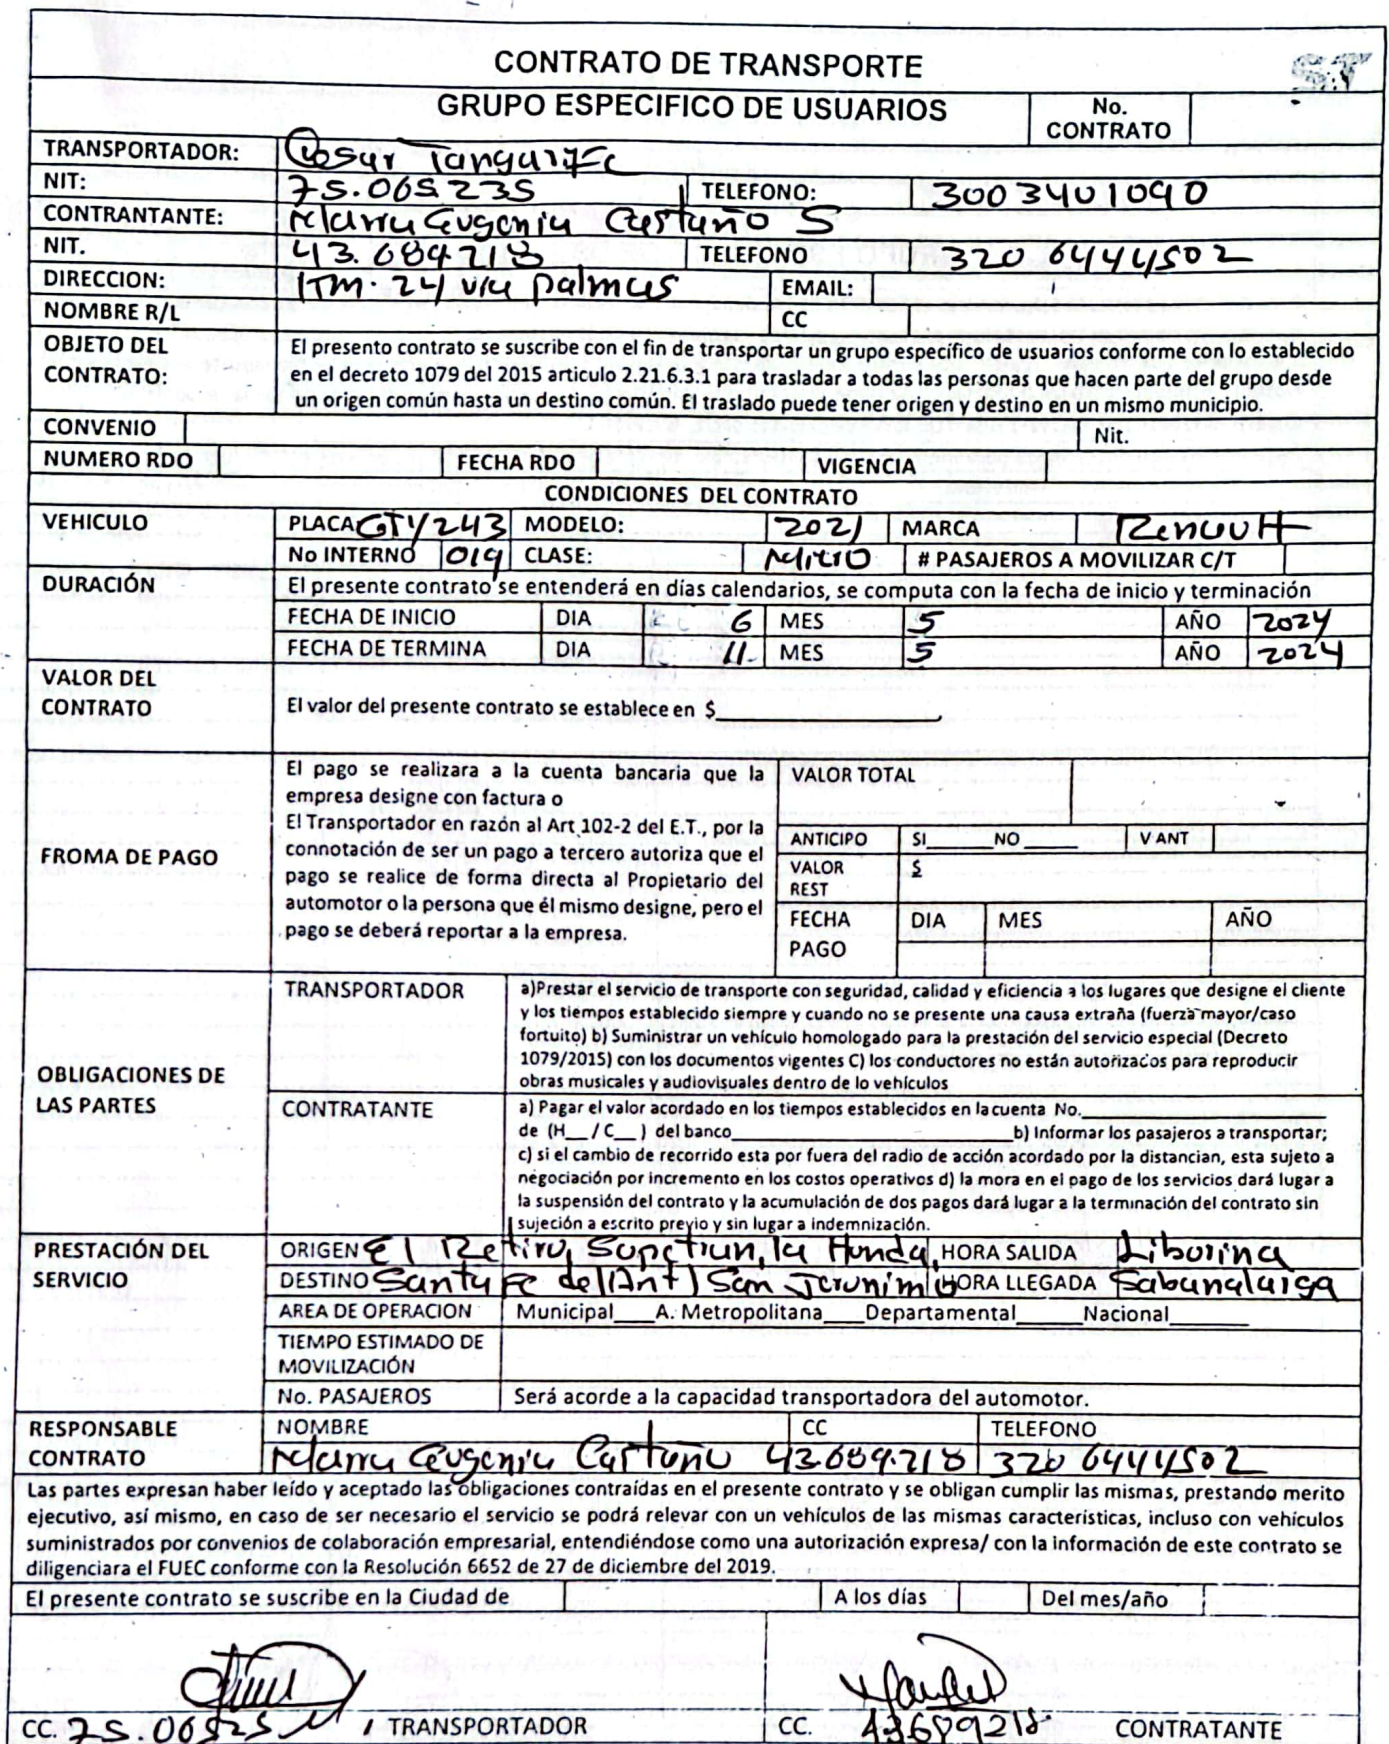 CONTRATO DE TRANSPORTE
ST
GRUPO ESPECIFICO DE USUARIOS
No. CONTRATO
TRANSPORTADOR: Cesar Tangarife
NIT: 75.065235 TELEFONO: 3003401090
CONTRANTANTE: Maria Eugenia Castaño S
NIT. 43.689218 TELEFONO 320 6444502
DIRECCION: KTM. 24 via palmas EMAIL:
NOMBRE R/L CC
OBJETO DEL CONTRATO:
El presento contrato se suscribe con el fin de transportar un grupo específico de usuarios conforme con lo establecido
en el decreto 1079 del 2015 articulo 2.21.6.3.1 para trasladar a todas las personas que hacen parte del grupo desde
un origen común hasta un destino común. El traslado puede tener origen y destino en un mismo municipio.
CONVENIO Nit.
NUMERO RDO FECHA RDO VIGENCIA
CONDICIONES DEL CONTRATO
VEHICULO PLACA GTY243 MODELO: 2021 MARCA Renault
No INTERNO 019 CLASE: Micro # PASAJEROS A MOVILIZAR C/T
DURACIÓN El presente contrato se entenderá en días calendarios, se computa con la fecha de inicio y terminación
FECHA DE INICIO DIA 6 MES 5 AÑO 2024
FECHA DE TERMINA DIA 11 MES 5 AÑO 2024
VALOR DEL CONTRATO
El valor del presente contrato se establece en $
FROMA DE PAGO
El pago se realizara a la cuenta bancaria que la
empresa designe con factura o
El Transportador en razón al Art 102-2 del E.T., por la
connotación de ser un pago a tercero autoriza que el
pago se realice de forma directa al Propietario del
automotor o la persona que él mismo designe, pero el
pago se deberá reportar a la empresa.
VALOR TOTAL
ANTICIPO SI____NO____ V ANT
VALOR REST $
FECHA PAGO DIA MES AÑO
OBLIGACIONES DE LAS PARTES
TRANSPORTADOR
a)Prestar el servicio de transporte con seguridad, calidad y eficiencia a los lugares que designe el cliente
y los tiempos establecido siempre y cuando no se presente una causa extraña (fuerza mayor/caso
fortuito) b) Suministrar un vehículo homologado para la prestación del servicio especial (Decreto
1079/2015) con los documentos vigentes C) los conductores no están autorizados para reproducir
obras musicales y audiovisuales dentro de lo vehículos
CONTRATANTE
a) Pagar el valor acordado en los tiempos establecidos en la cuenta No.____
de (H__/C__) del banco____b) Informar los pasajeros a transportar;
c) si el cambio de recorrido esta por fuera del radio de acción acordado por la distancian, esta sujeto a
negociación por incremento en los costos operativos d) la mora en el pago de los servicios dará lugar a
la suspensión del contrato y la acumulación de dos pagos dará lugar a la terminación del contrato sin
sujeción a escrito previo y sin lugar a indemnización.
PRESTACIÓN DEL SERVICIO
ORIGEN El Retiro, Sopetran, la Honda, HORA SALIDA Liborina
DESTINO Santa Fe del (Ant) San Jeronimo HORA LLEGADA Sabanalarga
AREA DE OPERACION Municipal___A. Metropolitana___Departamental____Nacional____
TIEMPO ESTIMADO DE MOVILIZACIÓN
No. PASAJEROS Será acorde a la capacidad transportadora del automotor.
RESPONSABLE CONTRATO
NOMBRE CC TELEFONO
Maria Eugenia Castaño 43.689.218 320 6444502
Las partes expresan haber leído y aceptado las obligaciones contraídas en el presente contrato y se obligan cumplir las mismas, prestando merito
ejecutivo, así mismo, en caso de ser necesario el servicio se podrá relevar con un vehículos de las mismas caracteristicas, incluso con vehículos
suministrados por convenios de colaboración empresarial, entendiéndose como una autorización expresa/ con la información de este contrato se
diligenciara el FUEC conforme con la Resolución 6652 de 27 de diciembre del 2019.
El presente contrato se suscribe en la Ciudad de A los días Del mes/año
CC. TRANSPORTADOR
CC. 43689218 CONTRATANTE